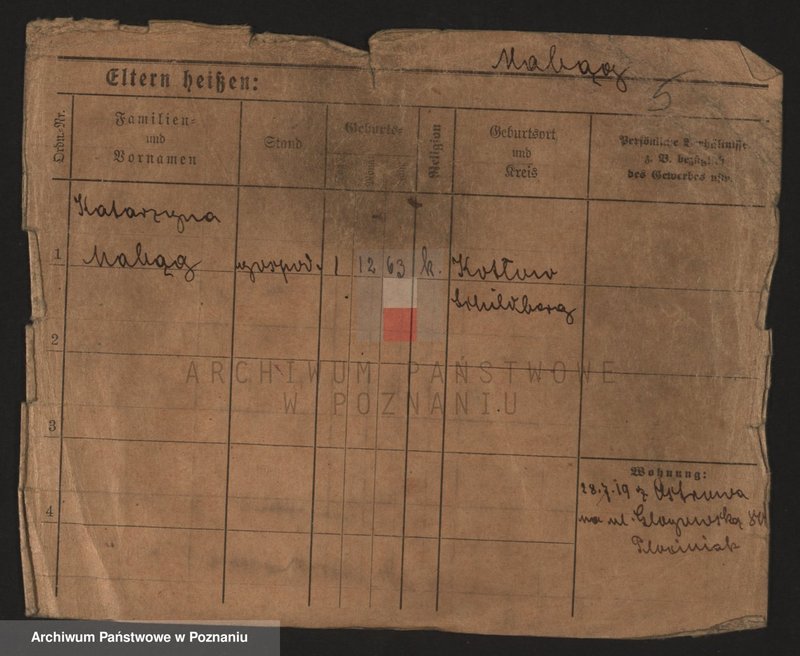 Małąg
5
Eltern heißen:
Ordn.-Nr.
Familien-
und
Vornamen
Stand
Geburts-
Religion
Geburtsort
und
Kreis
Persönliche Verhältnisse
z. B. bezüglich
des Gewerbes usw.
Katarzyna
1 Małąg gospod. 1 12 63 k. Kotłow
Schildberg
2
ARCHIWUM PAŃSTWOWE
W POZNANIU
3
Wohnung:
28.7.19 z Ostrowa
4
na ul. Głogowską
Archiwum Państwowe w Poznaniu